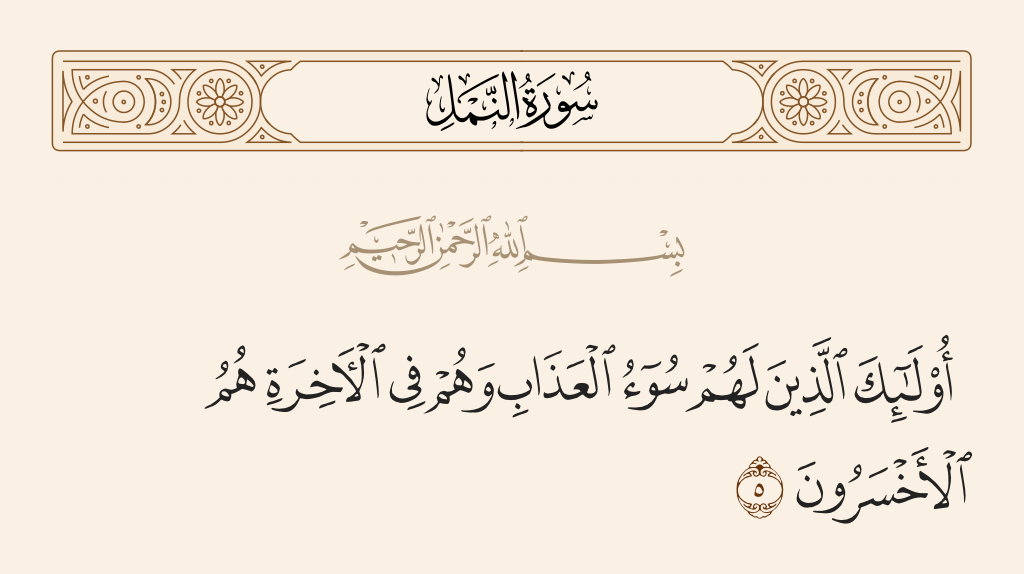 سُورَةُ النَّمْلِ
بِسْمِ ٱللَّهِ ٱلرَّحْمَٰنِ ٱلرَّحِيمِ
أُو۟لَٰٓئِكَ ٱلَّذِينَ لَهُمْ سُوٓءُ ٱلْعَذَابِ وَهُمْ فِى ٱلْـَٔاخِرَةِ هُمُ
ٱلْأَخْسَرُونَ ٥